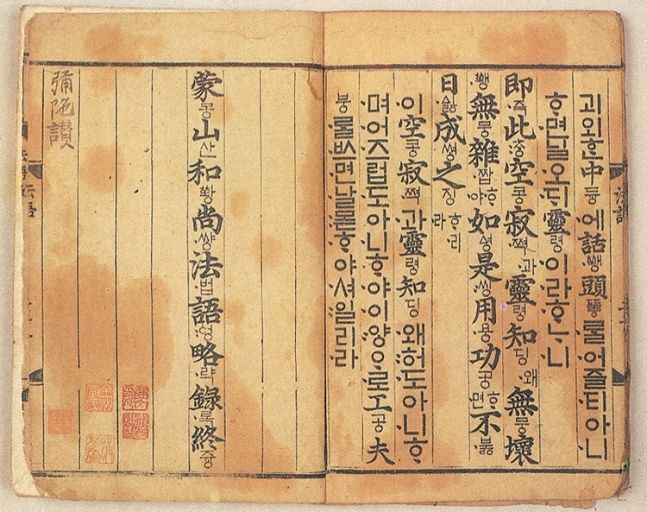 괴외ᄒᆞᆫ中듕에話ᅘᅪᆼ頭뚱ᄅᆞᆯ어즐티아니
ᄒᆞ면닐오ᄃᆡ靈령이라ᄒᆞᄂᆞ니
即즉此ᄎᆞᆼ空콩寂쪅과靈령知딩왜無뭉壞
ᅘᅬᆼ無뭉雜짭ᄒᆞ야如ᅀᅧᆼ是씽用용功공ᄒᆞ면不붏
日ᅀᅵᇙ成쎵之징ᄒᆞ리라
이空콩寂쪅과靈령知딩왜허도아니ᄒᆞ
며어즈럽도아니ᄒᆞ야이양ᄋᆞ로工공夫
붕ᄅᆞᆯᄡᅳ면날론ᄒᆞ야셔일리라
蒙몽山산和ᅘᅪᆼ尚썅法법語영略략錄록終즁
彌陁讚